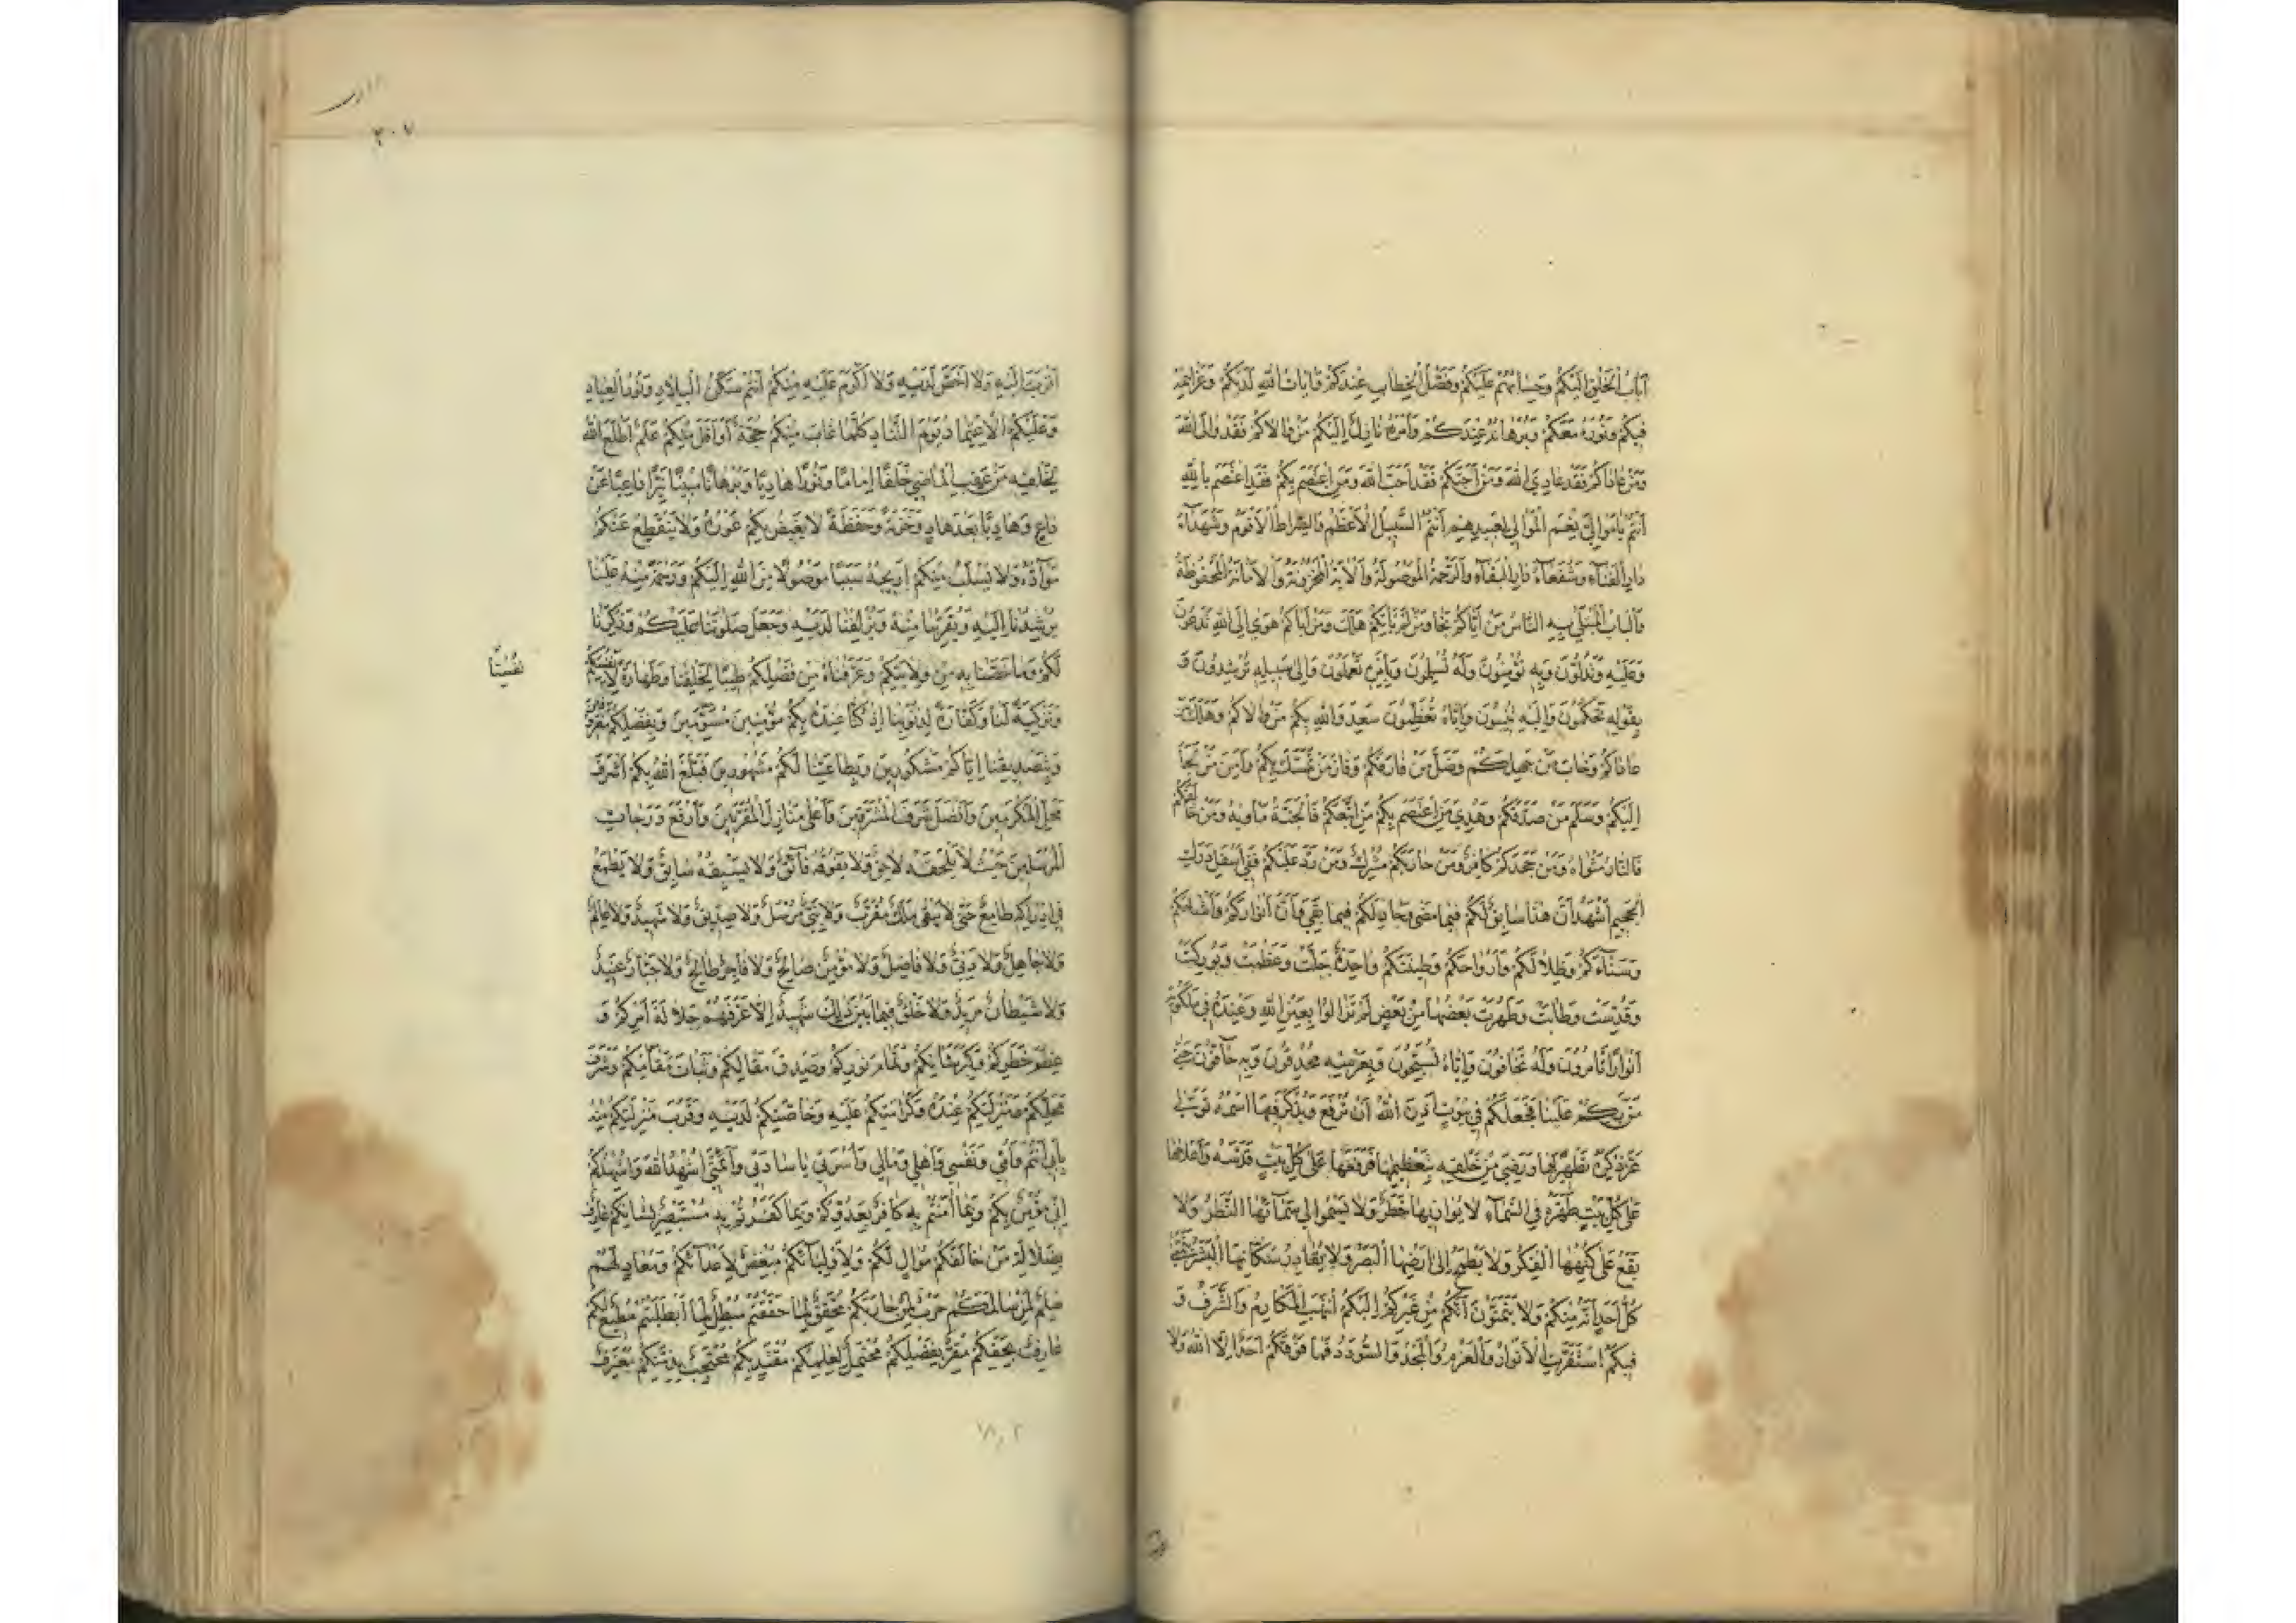 اٰيابُ الْخَلْقِ اِلَيْكُمْ وَحِسابُهُمْ عَلَيْكُمْ وَفَصْلُ الْخِطابِ عِنْدَكُمْ وَاٰياتُ اللهِ لَدَيْكُمْ وَعَزائِمُهُ
فيكُمْ وَنُورُهُ مَعَكُمْ وَبُرْهانُهُ عِنْدَكُمْ وَاَمْرُهُ نازِلٌ اِلَيْكُمْ مَنْ والاكُمْ فَقَدْ والَى اللهَ
وَمَنْ عاداكُمْ فَقَدْ عادَى اللهَ وَمَنْ اَحَبَّكُمْ فَقَدْ اَحَبَّ اللهَ وَمَنِ اعْتَصَمَ بِكُمْ فَقَدِ اعْتَصَمَ بِاللهِ
اَنْتُمْ يا مَوالِيَّ نِعْمَ الْمَوالي لِعَبيدِهِمْ اَنْتُمُ السَّبيلُ الْاَعْظَمُ وَالصِّراطُ الْاَقْوَمُ وَشُهَدآءُ
دارِ الْفَنآءِ وَشُفَعآءُ دارِ الْبَقآءِ وَالرَّحْمَةُ الْمَوْصُولَةُ وَالْاٰيَةُ الْمَخْزُونَةُ وَالْاَمانَةُ الْمَحْفُوظَةُ
وَالْبابُ الْمُبْتَلى بِهِ النّاسُ مَنْ اَتاكُمْ نَجا وَمَنْ لَمْ يَأْتِكُمْ هَلَكَ وَمَنْ اَباكُمْ هَوى اِلَى اللهِ تَدْعُونَ
وَعَلَيْهِ تَدُلُّونَ وَبِهِ تُؤْمِنُونَ وَلَهُ تُسَلِّمُونَ وَبِاَمْرِهِ تَعْمَلُونَ وَاِلى سَبيلِهِ تُرْشِدُونَ وَ
بِقَوْلِهِ تَحْكُمُونَ وَاِلَيْهِ تُنيبُونَ وَاِيّاهُ تُعَظِّمُونَ سَعِدَ وَاللهِ بِكُمْ مَنْ والاكُمْ وَهَلَكَ مَنْ
عاداكُمْ وَخابَ مَنْ جَهِلَكُمْ وَضَلَّ مَنْ فارَقَكُمْ وَفازَ مَنْ تَمَسَّكَ بِكُمْ وَاَمِنَ مَنْ لَجَأَ
اِلَيْكُمْ وَسَلِمَ مَنْ صَدَّقَكُمْ وَهُدِيَ مَنِ اعْتَصَمَ بِكُمْ مَنِ اتَّبَعَكُمْ فَالْجَنَّةُ مَأْويهُ وَمَنْ خالَفَكُمْ
فَالنّارُ مَثْواهُ وَمَنْ جَحَدَكُمْ كافِرٌ وَمَنْ حارَبَكُمْ مُشْرِكٌ وَمَنْ رَدَّ عَلَيْكُمْ فَفي اَسْفَلِ دَرَكِ
الْجَحيمِ اَشْهَدُ اَنَّ هذا سابِقٌ لَكُمْ فيما مَضى وَجارٍ لَكُمْ فيما بَقِيَ وَاَنَّ اَنْوارَكُمْ وَاَشْباحَكُمْ
وَسَنآءَكُمْ وَظِلالَكُمْ وَاَرْواحَكُمْ وَطينَتَكُمْ واحِدَةٌ جَلَّتْ وَعَظُمَتْ وَبُورِكَتْ
وَقُدِّسَتْ وَطابَتْ وَطَهُرَتْ بَعْضُها مِنْ بَعْضٍ لَمْ تَزالُوا بِعَيْنِ اللهِ وَعِنْدَهُ في مَلَكُوتِهِ
اَنْواراً تَأْمُرُونَ وَلَهُ تَخافُونَ وَاِيّاهُ تُسَبِّحُونَ وَبِعَرْشِهِ مُحْدِقُونَ وَبِهِ حآفُّونَ حَتّى
مَنَّ بِكُمْ عَلَيْنا فَجَعَلَكُمْ في بُيُوتٍ اَذِنَ اللهُ اَنْ تُرْفَعَ وَيُذْكَرَ فيهَا اسْمُهُ تَوَلّى
عَزَّ ذِكْرُهُ تَطْهيرَها وَرَضِيَ مِنْ خَلْقِهِ بِتَعْظيمِها فَرَفَعَها عَلى كُلِّ بَيْتٍ قَدَّسَهُ وَاَعْلاها
عَلى كُلِّ بَيْتٍ طَهَّرَهُ فِي السَّمآءِ لا يُوازيها خَطَرٌ وَلا يَسْمُوا اِلى سَمآئِهَا النَّظَرُ وَلا
يَقَعُ عَلى كُنْهِهَا الْفِكَرُ وَلا يَطْمَحُ اِلى اَرْضِهَا الْبَصَرُ وَلا يُغادِرُ سُكّانَهَا الْبَشَرُ يَتَمَنّى
كُلُّ اَحَدٍ اَنَّهُ مِنْكُمْ وَلا تَتَمَنَّوْنَ اَنَّكُمْ مِنْ غَيْرِكُمْ اِلَيْكُمُ انْتَهَتِ الْمَكارِمُ وَالشَّرَفُ وَ
فيكُمُ اسْتَقَرَّتِ الْاَنْوارُ وَالْعَزْمُ وَالْمَجْدُ وَالسُّؤْدَدُ فَما فَوْقَكُمْ اَحَدٌ اِلَّا اللهُ وَلا
٣٠٧
اَقْرَبَ اِلَيْهِ وَلا اَخَصَّ لَدَيْهِ وَلا اَكْرَمَ عَلَيْهِ مِنْكُمْ اَنْتُمْ سَكَنُ الْبِلادِ وَنُورُ الْعِبادِ
وَعَلَيْكُمُ الْاِعْتِمادُ يَوْمَ التَّنادِ كُلَّما غابَ مِنْكُمْ حُجَّةٌ اَوْ اَفَلَ مِنْكُمْ عَلَمٌ اَطْلَعَ اللهُ
لِخَلْقِهِ مِنْ عَقِبِ الْماضي خَلَفاً اِماماً وَنُوراً هادِياً وَبُرْهاناً مُبيناً نَيِّراً داعِياً عَنْ
داعٍ وَهادِياً بَعْدَ هادٍ وَخَزَنَةً وَحَفَظَةً لا يَغيضُ بِكُمْ غَوْرُهُ وَلا يَنْقَطِعُ عَنْكُمْ
مَوآدُّهُ وَلا يُسْلَبُ مِنْكُمْ اِرْثُهُ سَبَباً مَوْصُولاً مِنَ اللهِ اِلَيْكُمْ وَرَحْمَةً مِنْهُ عَلَيْنا
يُرْشِدُنا اِلَيْهِ وَيُقَرِّبُنا مِنْهُ وَيُزْلِفُنا لَدَيْهِ وَجَعَلَ صَلَوتَنا عَلَيْكُمْ وَذِكْرَنا
لَكُمْ وَما خَصَّنا بِهِ مِنْ وِلايَتِكُمْ وَعَرَّفَناهُ مِنْ فَضْلِكُمْ طيباً لِخَلْقِنا وَطَهارَةً لِاَنْفُسِكُمْ
نفُسِنا
وَتَزْكِيَةً لَنا وَكَفّارَةً لِذُنُوبِنا اِذْ كُنّا عِنْدَهُ بِكُمْ مُؤْمِنينَ مُسَوَّمينَ وَبِفَضْلِكُمْ مَعْرُوفينَ
وَبِتَصْديقِنا اِيّاكُمْ مَشْكُورينَ وَبِطاعَتِنا لَكُمْ مَشْهُورينَ فَبَلَغَ اللهُ بِكُمْ اَشْرَفَ
مَحَلِّ الْمُكَرَّمينَ وَاَفْضَلَ شَرَفِ الْمُشَرَّفينَ وَاَعْلى مَنازِلِ الْمُقَرَّبينَ وَاَرْفَعَ دَرَجاتِ
الْمُرْسَلينَ حَيْثُ لا يَلْحَقُهُ لاحِقٌ وَلا يَفُوقُهُ فآئِقٌ وَلا يَسْبِقُهُ سابِقٌ وَلا يَطْمَعُ
في اِدْراكِهِ طامِعٌ حَتّى لا يَبْقى مَلَكٌ مُقَرَّبٌ وَلا نَبِيٌّ مُرْسَلٌ وَلا صِدّيقٌ وَلا شَهيدٌ وَلا عالِمٌ
وَلا جاهِلٌ وَلا دَنِيٌّ وَلا فاضِلٌ وَلا مُؤْمِنٌ صالِحٌ وَلا فاجِرٌ طالِحٌ وَلا جَبّارٌ عَنيدٌ
وَلا شَيْطانٌ مَريدٌ وَلا خَلْقٌ فيما بَيْنَ ذلِكَ شَهيدٌ اِلّا عَرَّفَهُمْ جَلالَةَ اَمْرِكُمْ وَ
عِظَمَ خَطَرِكُمْ وَكِبَرَ شَأْنِكُمْ وَتَمامَ نُورِكُمْ وَصِدْقَ مَقالِكُمْ وَثَباتَ مَقامِكُمْ وَشَرَفَ
مَحَلِّكُمْ وَمَنْزِلَتِكُمْ عِنْدَهُ وَكَرامَتِكُمْ عَلَيْهِ وَخاصَّتِكُمْ لَدَيْهِ وَقُرْبَ مَنْزِلَتِكُمْ مِنْهُ
بِاَبي اَنْتُمْ وَاُمّي وَنَفْسي وَاَهْلي وَمالي وَاُسْرَتي يا ساداتي وَاَئِمَّتي اُشْهِدُ اللهَ وَاُشْهِدُكُمْ
اِنّي مُؤْمِنٌ بِكُمْ وَبِما اٰمَنْتُمْ بِهِ كافِرٌ بِعَدُوِّكُمْ وَبِما كَفَرْتُمْ بِهِ مُسْتَبْصِرٌ بِشَأْنِكُمْ عارِفٌ
بِضَلالَةِ مَنْ خالَفَكُمْ مُوالٍ لَكُمْ وَلِاَوْلِيآئِكُمْ مُبْغِضٌ لِاَعْدآئِكُمْ وَمُعادٍ لَهُمْ
سِلْمٌ لِمَنْ سالَمَكُمْ حَرْبٌ لِمَنْ حارَبَكُمْ مُحَقِّقٌ لِما حَقَّقْتُمْ مُبْطِلٌ لِما اَبْطَلْتُمْ مُطيعٌ لَكُمْ
عارِفٌ بِحَقِّكُمْ مُقِرٌّ بِفَضْلِكُمْ مُحْتَمِلٌ لِعِلْمِكُمْ مُقْتَدٍ بِكُمْ مُحْتَجِبٌ بِذِمَّتِكُمْ مُعْتَرِفٌ